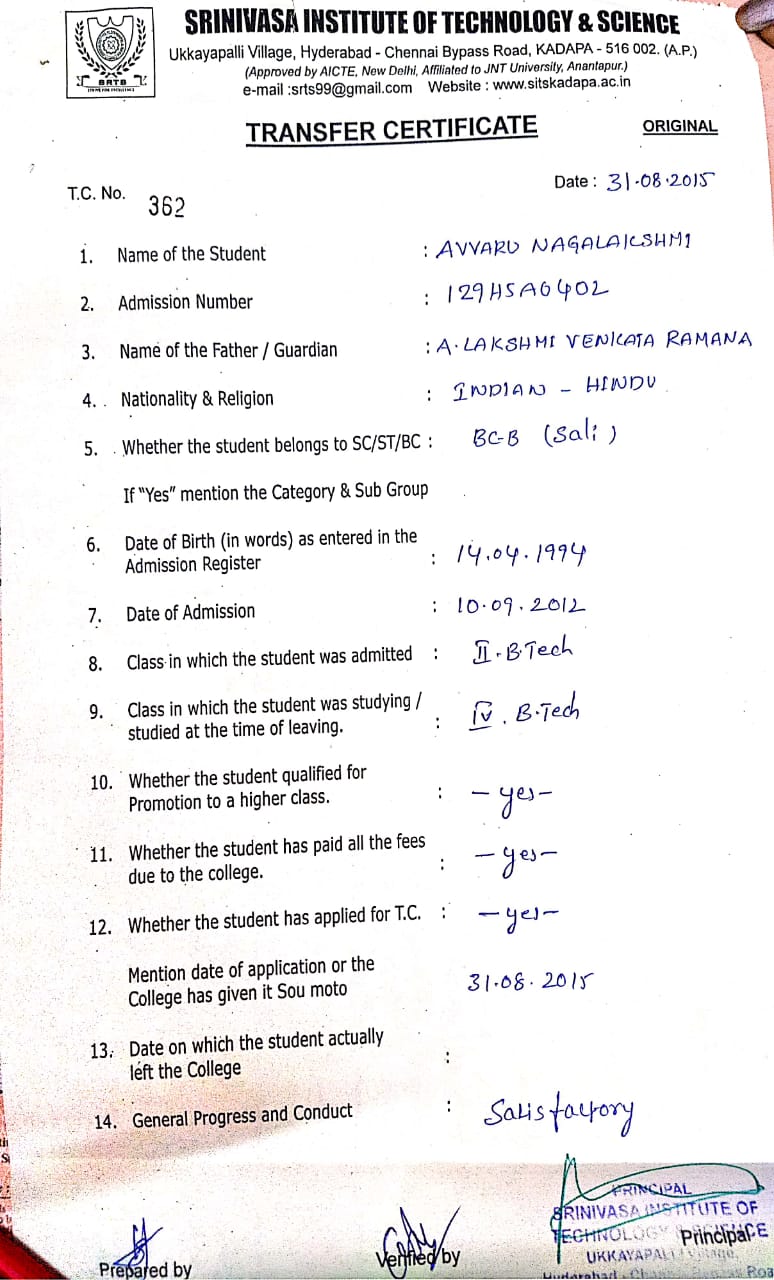 SRINIVASA INSTITUTE OF TECHNOLOGY & SCIENCE
Ukkayapalli Village, Hyderabad - Chennai Bypass Road, KADAPA - 516 002. (A.P.)
(Approved by AICTE, New Delhi, Affiliated to JNT University, Anantapur.)
e-mail :srts99@gmail.com Website : www.sitskadapa.ac.in
TRANSFER CERTIFICATE ORIGINAL
T.C. No. 362 Date : 31-08-2015
1. Name of the Student : AVVARU NAGALAKSHMI
2. Admission Number : 129H5A0402
3. Name of the Father / Guardian : A. LAKSHMI VENKATA RAMANA
4. Nationality & Religion : INDIAN - HINDU
5. Whether the student belongs to SC/ST/BC : BC-B (Sali)
If "Yes" mention the Category & Sub Group
6. Date of Birth (in words) as entered in the
Admission Register : 14.04.1994
7. Date of Admission : 10.09.2012
8. Class in which the student was admitted : II - B.Tech
9. Class in which the student was studying /
studied at the time of leaving. : IV . B.Tech
10. Whether the student qualified for
Promotion to a higher class. : - yes -
11. Whether the student has paid all the fees
due to the college. : - yes -
12. Whether the student has applied for T.C. : - yes -
Mention date of application or the
College has given it Sou moto 31.08.2015
13. Date on which the student actually
left the College :
14. General Progress and Conduct : Satisfactory
PRINCIPAL
SRINIVASA INSTITUTE OF
TECHNOLOGY & SCIENCE
UKKAYAPALLI Village,
Prepared by Verified by Principal